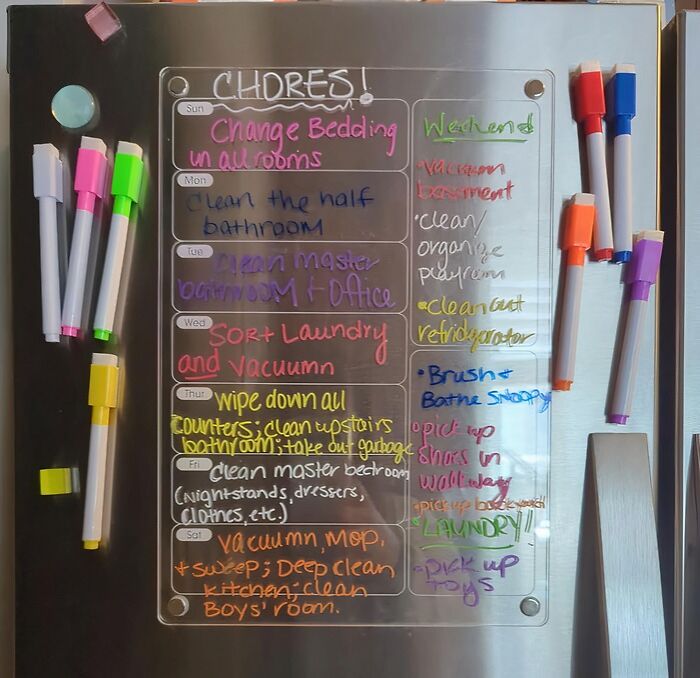 CHORES!
Sun
Change Bedding
in all rooms
Mon
Clean the half
bathroom
Tue
Clean master
bathroom + Office
Wed
Sort Laundry
and vacuumn
Thur
wipe down all
counters; clean upstairs
bathroom; take out garbage
Fri
clean master bedroom
(nightstands, dressers,
clothes, etc.)
Sat
vacuumn, mop,
+ sweep; Deep clean
kitchen; clean
Boys' room.
Weekend
•vacuumn
basement
•clean/
organize
playroom
•clean out
refridgerator
•Brush +
Bathe Snoopy
•pick up
shoes in
walkway
•pick up backyard
•LAUNDRY!!
•pick up
toys